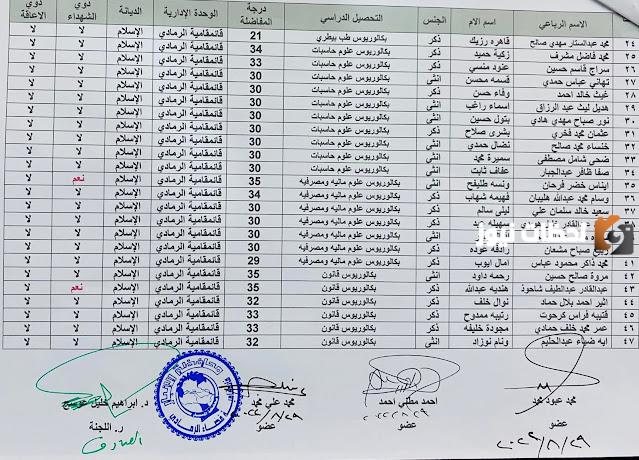 ت الاسم الرباعي اسم الام الجنس التحصيل الدراسي درجة المفاضلة الوحدة الإدارية الديانة ذوي الشهداء ذوي الاعاقة
٢٤ محمد عبدالستار مهدي صالح قاهره رزيك ذكر بكالوريوس طب بيطري 21 قائمقامية الرمادي الإسلام لا لا
٢٥ محمد فاضل مشرف زكية حميد ذكر بكالوريوس علوم حاسبات 34 قائمقامية الرمادي الإسلام لا لا
٢٦ سراج قاسم حسين عنود منسي ذكر بكالوريوس علوم حاسبات 33 قائمقامية الرمادي الإسلام لا لا
٢٧ تهاني عباس حمدي قسمه محسن انثى بكالوريوس علوم حاسبات 33 قائمقامية الرمادي الإسلام لا لا
٢٨ غيث خالد احمد وفاء حسن ذكر بكالوريوس علوم حاسبات 30 قائمقامية الرمادي الإسلام لا لا
٢٩ هديل ليث عبد الرزاق اسماء راغب انثى بكالوريوس علوم حاسبات 30 قائمقامية الرمادي الإسلام لا لا
٣٠ نور صباح مهدي هادي بتول حسين انثى بكالوريوس علوم حاسبات 30 قائمقامية الرمادي الإسلام لا لا
٣١ عثمان محمد فخري بشرى صلاح ذكر بكالوريوس علوم حاسبات 30 قائمقامية الرمادي الإسلام لا لا
٣٢ خنساء محمد صالح نضال حمدي انثى بكالوريوس علوم حاسبات 30 قائمقامية الرمادي الإسلام لا لا
٣٣ ضحى شامل مصطفى سميرة محمد انثى بكالوريوس علوم حاسبات 30 قائمقامية الرمادي الإسلام لا لا
٣٤ صفا ظافر عبدالجبار عفاف ثابت انثى بكالوريوس علوم حاسبات 30 قائمقامية الرمادي الإسلام لا لا
٣٥ ايناس خضر فرحان ونسه طليفح انثى بكالوريوس علوم ماليه ومصرفيه 35 قائمقامية الرمادي الإسلام نعم لا
٣٦ وسام محمد عبدالله هليبان فهيمه شهاب ذكر بكالوريوس علوم ماليه ومصرفيه 34 قائمقامية الرمادي الإسلام لا لا
سعيد خالد سلمان علي ليلى سالم ذكر بكالوريوس علوم ماليه ومصرفيه 30 قائمقامية الرمادي الإسلام لا لا
القادر ذكر بكالوريوس علوم ماليه ومصرفيه 30 قائمقامية الرمادي الإسلام لا لا
لحظات نيوز
30 قائمقامية الرمادي الإسلام لا لا
صباح مشعان عوده ذكر بكالوريوس علوم ماليه ومصرفيه 30 قائمقامية الرمادي الإسلام لا لا
٤١ محمد ذاكر محمود عباس امال ايوب ذكر بكالوريوس علوم ماليه ومصرفيه 29 قائمقامية الرمادي الإسلام لا لا
٤٢ مروة صالح حسين رحمه داود انثى بكالوريوس قانون 35 قائمقامية الرمادي الإسلام لا لا
٤٣ عبدالقادر عبدالطيف شاحوذ هنديه عبدالله ذكر بكالوريوس قانون 35 قائمقامية الرمادي الإسلام نعم لا
٤٤ اثير احمد بلال حماد نوال خلف ذكر بكالوريوس قانون 32 قائمقامية الرمادي الإسلام لا لا
٤٥ قتيبه فراس كرحوت رتيبه ممدوح ذكر بكالوريوس قانون 33 قائمقامية الرمادي الإسلام لا لا
٤٦ عمر محمد خلف حمادي مجودة خليفه ذكر بكالوريوس قانون 33 قائمقامية الرمادي الإسلام لا لا
٤٧ ايه ضياء عبدالحليم ونام نوزاد انثى بكالوريوس قانون 32 قائمقامية الرمادي الإسلام لا لا
محمد عبود محمد احمد مطلبي احمد محمد علي محمد د. ابراهيم خليل
عضو عضو عضو ر. اللجنة